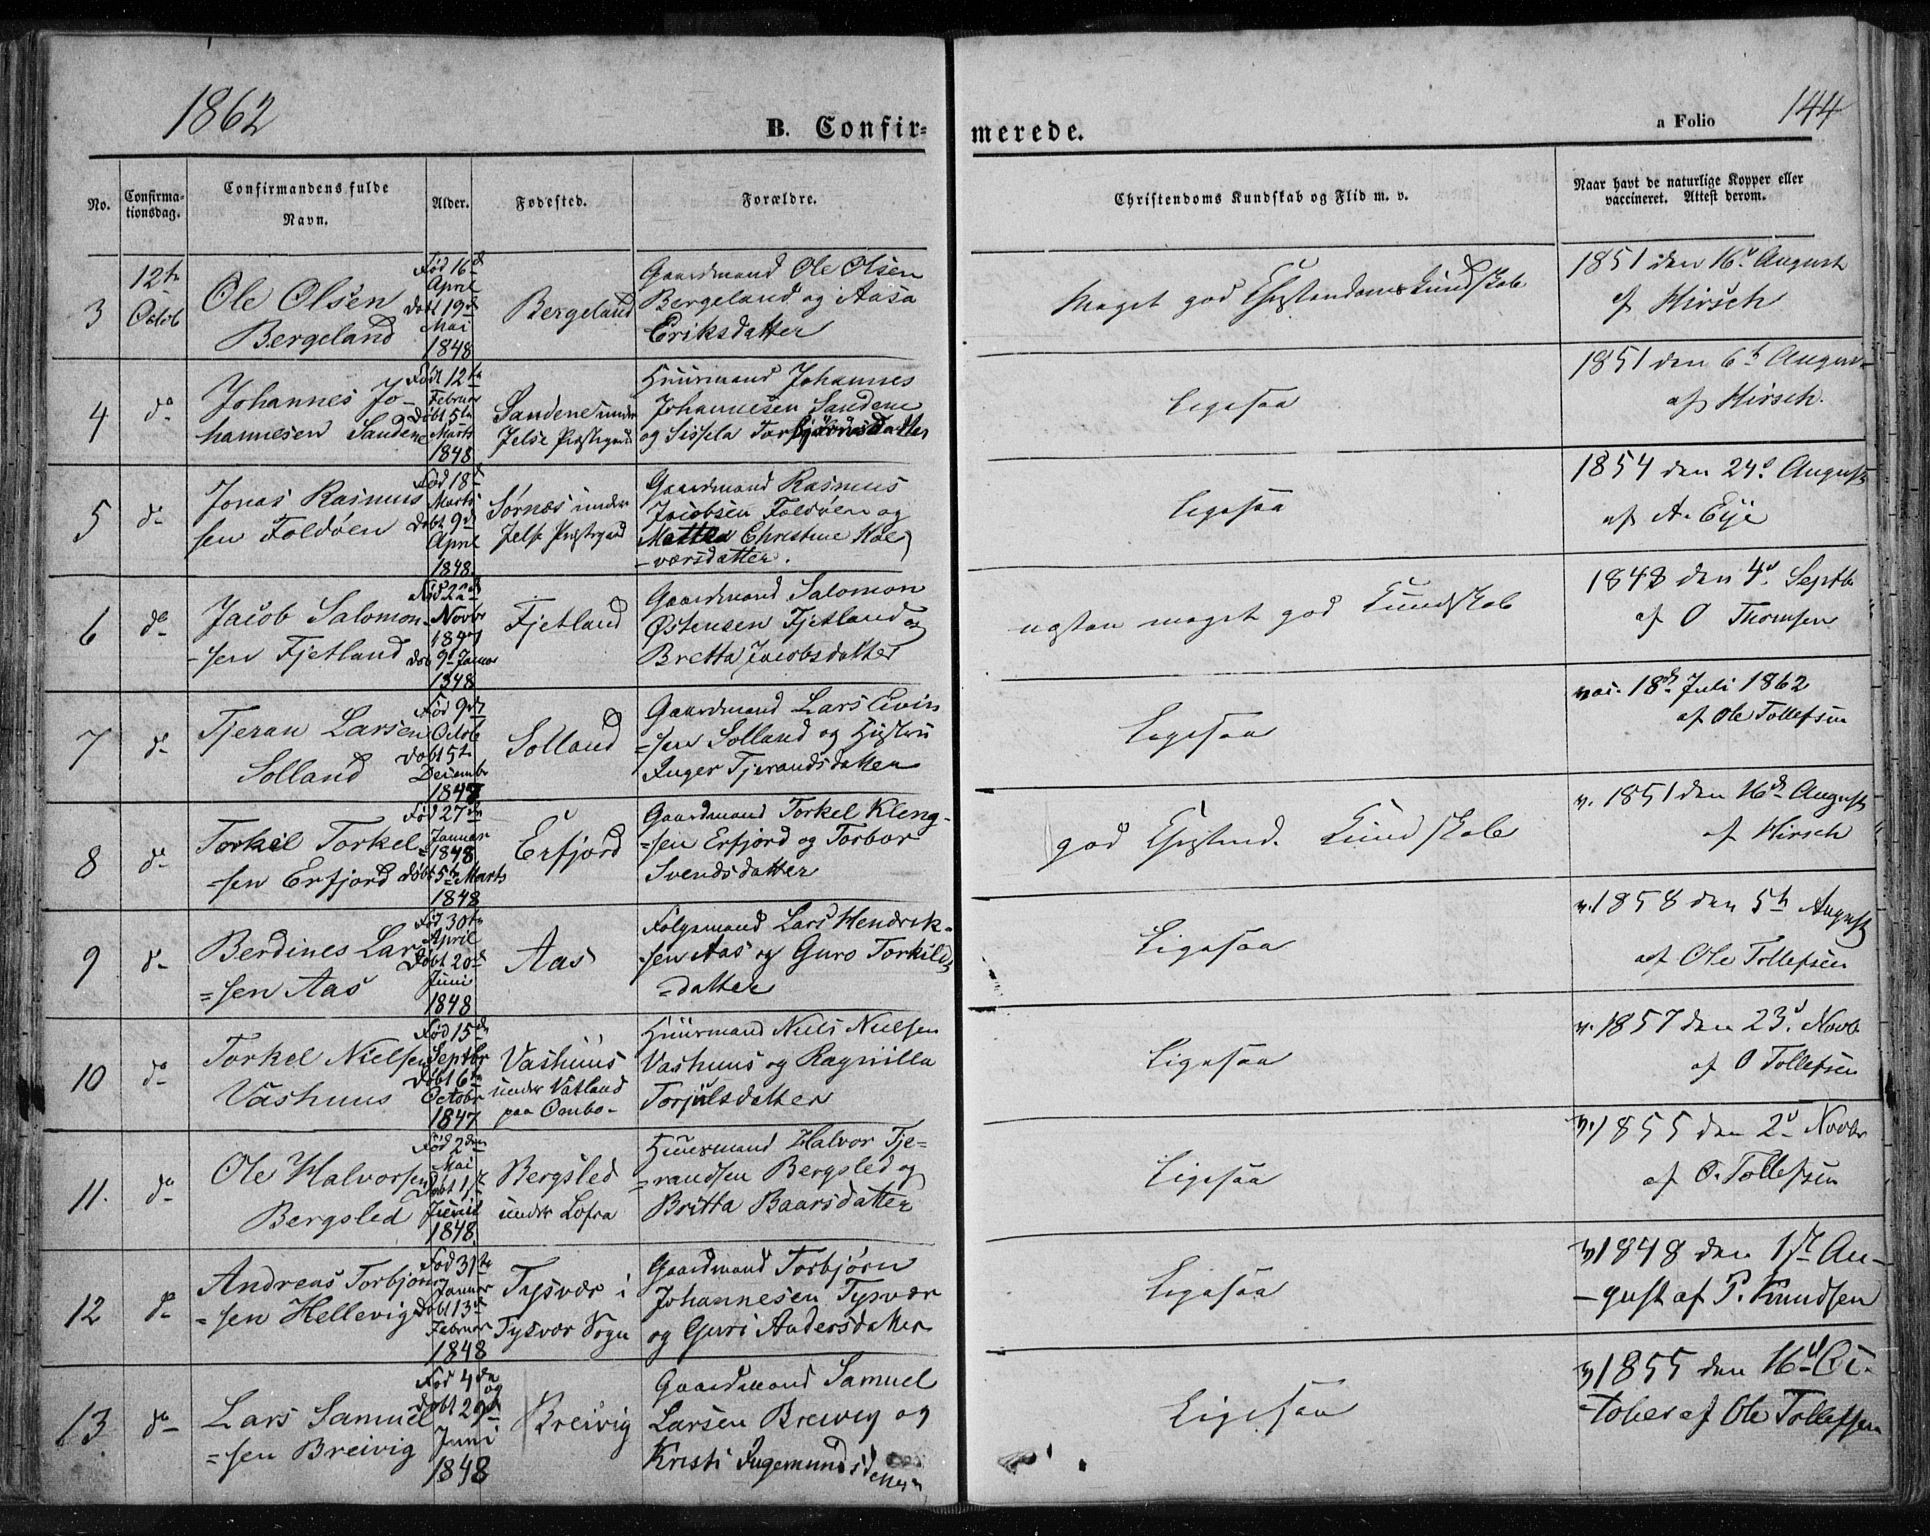 1862
B. Confir-
merede.
a Folio 144
No.
Confirma-
tionsdag.
Confirmandens fulde
Navn.
Alder.
Fødested.
Forældre.
Christendoms Kundskab og Flid m. v.
Naar havt de naturlige Kopper eller
vaccineret. Attest derom.
3
12te
Octob
Ole Olsen
Bergeland
Fød 16d
April
døbt 19d
Mai
1848
Bergeland
Gaardmand Ole Olsen
Bergeland og Aasa
Eriksdatter
Meget god Christendoms Kundskab
1851 den 16d August
af Hirsch
4
do
Johannes Jo-
hannesen Sandene
Født 12te
Februar
Døbt 5te
Marts
1848
Sandene under
Jelse Præstegaard
Huusmand Johannes
Johannesen Sandene
og Sissela Torbjørnsdatter
Ligesaa
1851 den 6te August
af Hirsch.
5
do
Jonas Rasmus
sen Foldøen
Fød 18d
Marts
Døbt 9d
April
1848
Sørnæs under
Jelse Præstegaard
Gaardmand Rasmus
Jacobsen Foldøen og
Mattea Christine Hal-
-vorsdatter.
Ligesaa
1854 den 24d August
af A. Eije
6
do
Jacob Salomon
-sen Fjetland
Fød 22d
Novbr
1847
døb 9d Januar
1848
Fjetland
Gaardmand Salomon
Østensen Fjetland og
Bretta Jacobsdatter
næsten meget god Kundskab
1848 den 4d Septb
af O Thomsen
7
do
Tjeran Larsen
Solland
Fød 9de
Octob
Døbt 5te
Decembr
1847
Solland
Gaardmand Lars Eivin
=sen Solland og Hustru
Inger Tjerandsdatter
Ligesaa
vac. 18de Juli 1862
af Ole Tollefsen
8
do
Torkel Torkel-
=sen Erfjord
Fød 27de
Januar
1848
døbt 5te Marts
1848
Erfjord
Gaardmand Torkel Kleng-
=sen Erfjord og Torbor
Svendsdatter
god Christend. Kundskab
v. 1851 den 16de August
af Hirsch
9
do
Berdines Lar
=sen Aas
Fød 30te
April
Døbt 20d
Juni
1848
Aas
Følgemand Lars Hendrik-
-sen Aas og Guro Torkilds
=datter
Ligesaa
v. 1858 den 5te August
af Ole Tollefsen
10
do
Torkel Nielsen
Vashuus
Fød 15de
Septbr
Døbt 6te
Octobr
1847
Vashuus
under Vatland
paa Ombo-
Huusmand Niels Nielsen
Vashuus og Ragnilla
Torjulsdatter
Ligesaa
v. 1857 den 23d Novb
af O Tollefsen
11.
do
Ole Halvorsen
Bergsled
Fød 2den
Mai
Døbt 1ste
Junii
1848.
Bergsled
under Lofra
Huusmand Halvor Tje-
=randsen Bergsled og
Britta Baarsdatter
Ligesaa
v. 1855 den 2d Novbr
af O. Tollefsen
12
do
Andreas Torbjørn
=sen Hellevig
Fød 31te
Januar
Døbt 13de
Februar
1848
Tysvær i
Tysvær Sogn
Gaardmand Torbjørn
Johannesen Tysvær
og Guri Andersdatter
Ligesaa
v 1848 den 1ste Au-
-gust af P. Knudsen
13
do
Lars Samuel
=sen Breivig
Fød 4de
og
Døbt 29de
Juni
1848
Breivig
Gaardmand Samuel
Larsen Breivig og
Kristi Ingemundsdatter
Ligesaa
v 1855 den 16d Oc-
-tober af Ole Tollefsen